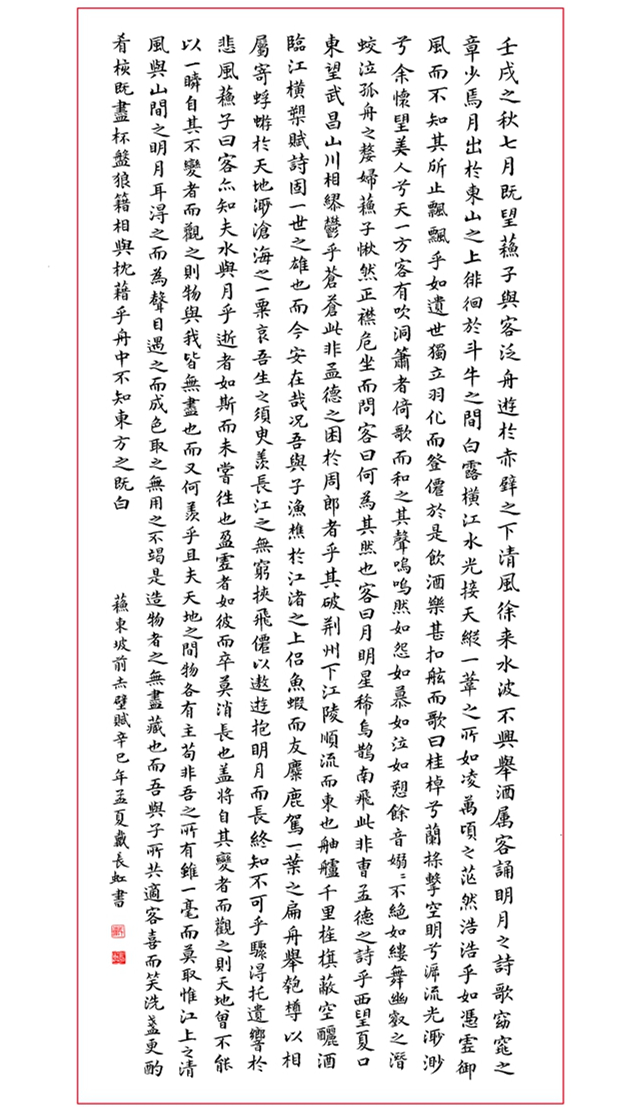 壬戌之秋七月既望蘓子與客泛舟遊於赤壁之下清風徐来水波不興舉酒属客誦明月之詩歌窈窕之
章少焉月出於東山之上徘徊於斗牛之間白露横江水光接天縱一葦之所如凌萬頃之茫然浩浩乎如馮虚御
風而不知其所止飄飄乎如遺世獨立羽化而登僊於是飲酒樂甚扣舷而歌曰桂棹兮蘭槳擊空明兮泝流光渺渺
兮余懷望美人兮天一方客有吹洞簫者倚歌而和之其聲嗚嗚然如怨如慕如泣如愬餘音嫋〻不絕如縷舞幽壑之潛
蛟泣孤舟之嫠婦蘓子愀然正襟危坐而問客曰何為其然也客曰月明星稀烏鵲南飛此非曹孟德之詩乎西望夏口
東望武昌山川相繆鬱乎蒼蒼此非孟德之困於周郎者乎其破荆州下江陵順流而東也舳艫千里旌旗蔽空釃酒
臨江横槊賦詩固一世之雄也而今安在哉况吾與子漁樵於江渚之上侣魚蝦而友麋鹿駕一葉之扁舟舉匏樽以相
屬寄蜉蝣於天地渺滄海之一粟哀吾生之須臾羨長江之無窮挾飛僊以遨遊抱明月而長終知不可乎驟得托遺響於
悲風蘓子曰客亦知夫水與月乎逝者如斯而未嘗往也盈虚者如彼而卒莫消長也盖将自其變者而觀之則天地曾不能
以一瞬自其不變者而觀之則物與我皆無盡也而又何羨乎且夫天地之間物各有主苟非吾之所有雖一毫而莫取惟江上之清
風與山間之明月耳得之而為聲目遇之而成色取之無用之不竭是造物者之無盡藏也而吾與子所共適客喜而笑洗盞更酌
肴核既盡杯盤狼籍相與枕藉乎舟中不知東方之既白
蘓東坡前赤壁賦辛巳年孟夏戴長虹書